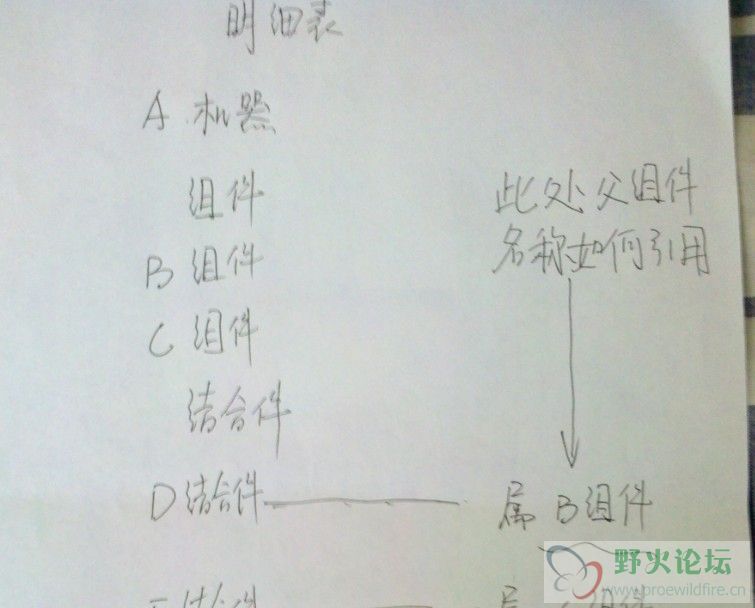 明细表
A 机器
组件
B 组件
C 组件
结合件
D 结合件 属 B组件
此处父组件
名称如何引用
结合件
组件
野火论坛
www.proewildfire.cn